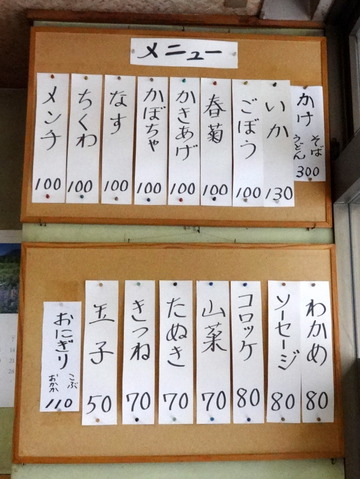 メニュー
かけ そば うどん 300
いか 130
ごぼう 100
春菊 100
かきあげ 100
かぼちゃ 100
なす 100
ちくわ 100
メンチ 100
わかめ 80
ソーセージ 80
コロッケ 80
山菜 70
たぬき 70
きつね 70
玉子 50
おにぎり こぶ おかか 110